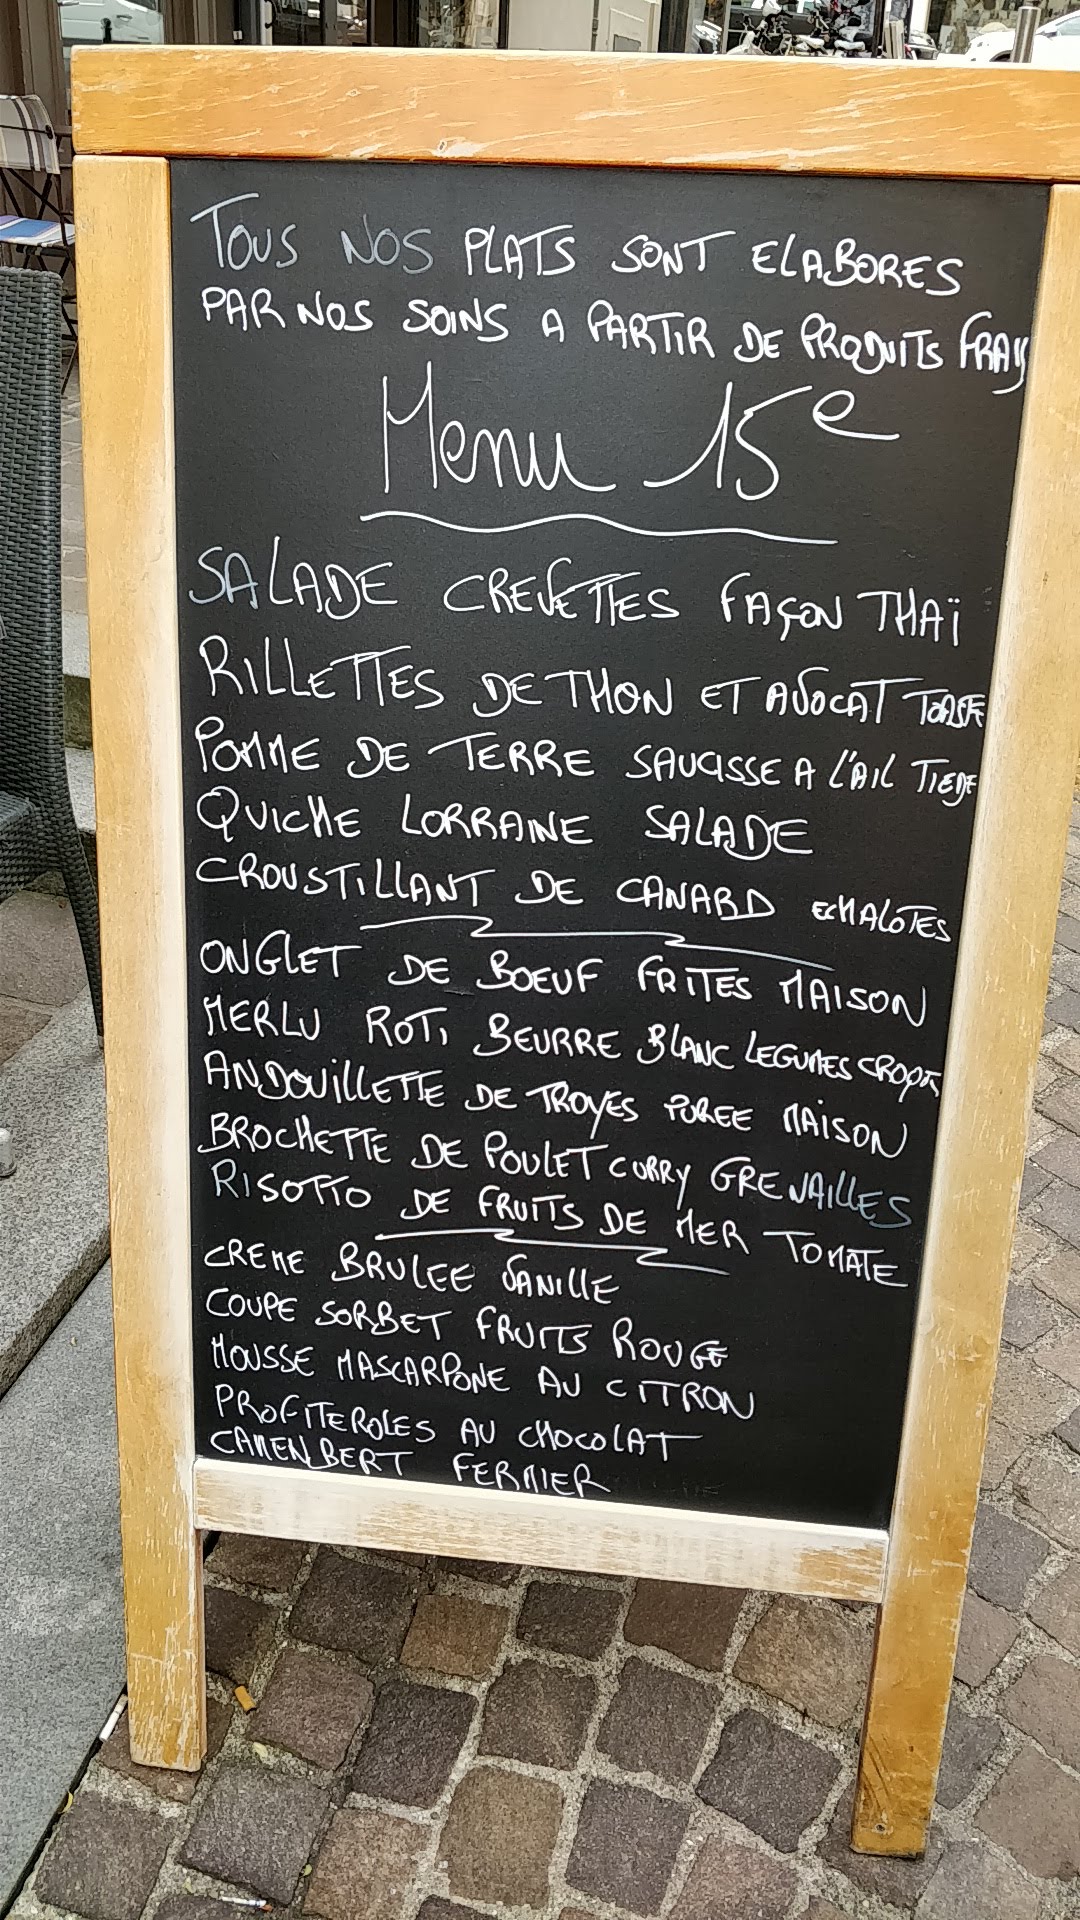 TOUS NOS PLATS SONT ELABORES
PAR NOS SOINS A PARTIR DE PRODUITS FRAIS
Menu 15e
SALADE CREVETTES FAÇON THAÏ
RILLETTES DE THON ET AVOCAT TOASTE
POMME DE TERRE SAUCISSE A L'AIL TIEDE
QUICHE LORRAINE SALADE
CROUSTILLANT DE CANARD ECHALOTES
ONGLET DE BOEUF FRITES MAISON
MERLU ROTI BEURRE BLANC LEGUMES CROQTS
ANDOUILLETTE DE TROYES PUREE MAISON
BROCHETTE DE POULET CURRY GRENAILLES
RISOTTO DE FRUITS DE MER TOMATE
CREME BRULEE VANILLE
COUPE SORBET FRUITS ROUGE
MOUSSE MASCARPONE AU CITRON
PROFITEROLES AU CHOCOLAT
CAMENBERT FERMIER